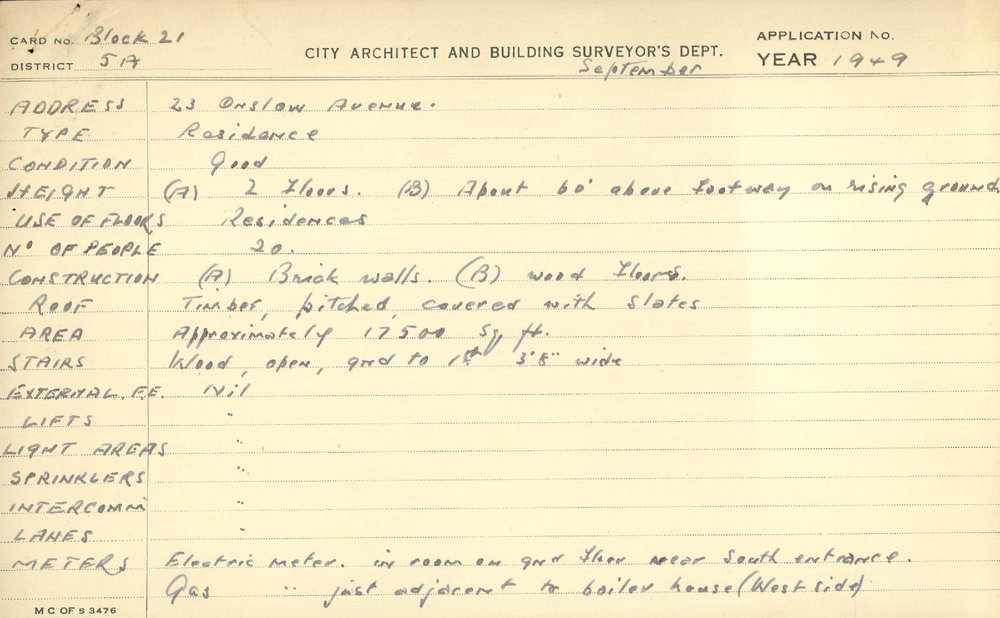 CARD No. Block 21
DISTRICT 5A
CITY ARCHITECT AND BUILDING SURVEYOR'S DEPT.
September
APPLICATION No.
YEAR 1949
ADDRESS 23 Onslow Avenue.
TYPE Residence
CONDITION Good
HEIGHT (A) 2 Floors. (B) About 60' above footway on rising ground
USE OF FLOORS Residences
No OF PEOPLE 20.
CONSTRUCTION (A) Brick walls. (B) wood floors.
ROOF Timber, pitched, covered with slates
AREA Approximately 17500 Sq. ft.
STAIRS Wood, open, grd to 1st 3'8" wide
EXTERNAL F.E. Nil
LIFTS "
LIGHT AREAS "
SPRINKLERS "
INTERCOMM "
LANES "
METERS Electric meter. in room on grd floor near South entrance.
Gas " just adjacent to boiler house (West side)
M C OF S 3476